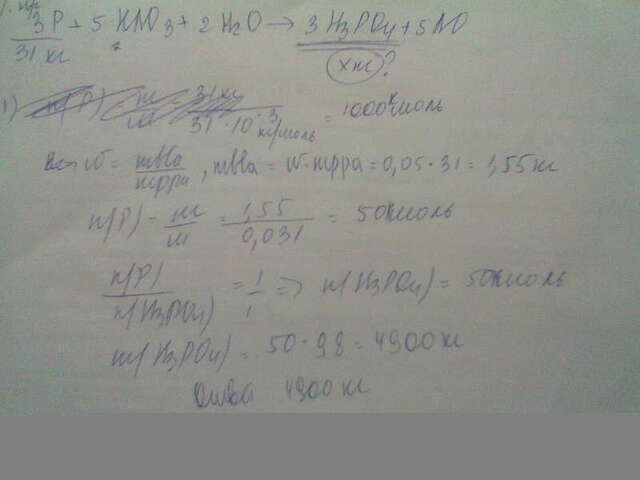 3P + 5 HNO3 + 2 H2O → 3 H3PO4 + 5 NO
31 кг
х кг?
1) n(P) m/M 31 кг / 31·10⁻³ кг/моль = 1000 моль
w = mвва/mрра, mвва = w·mрра = 0,05·31 = 1,55 кг
n(P) = m/M = 1,55/0,031 = 50 кмоль
n(P)/n(H3PO4) = 1/1 => n(H3PO4) = 50 кмоль
m(H3PO4) = 50·98 = 4900 кг
Ответ 4900 кг